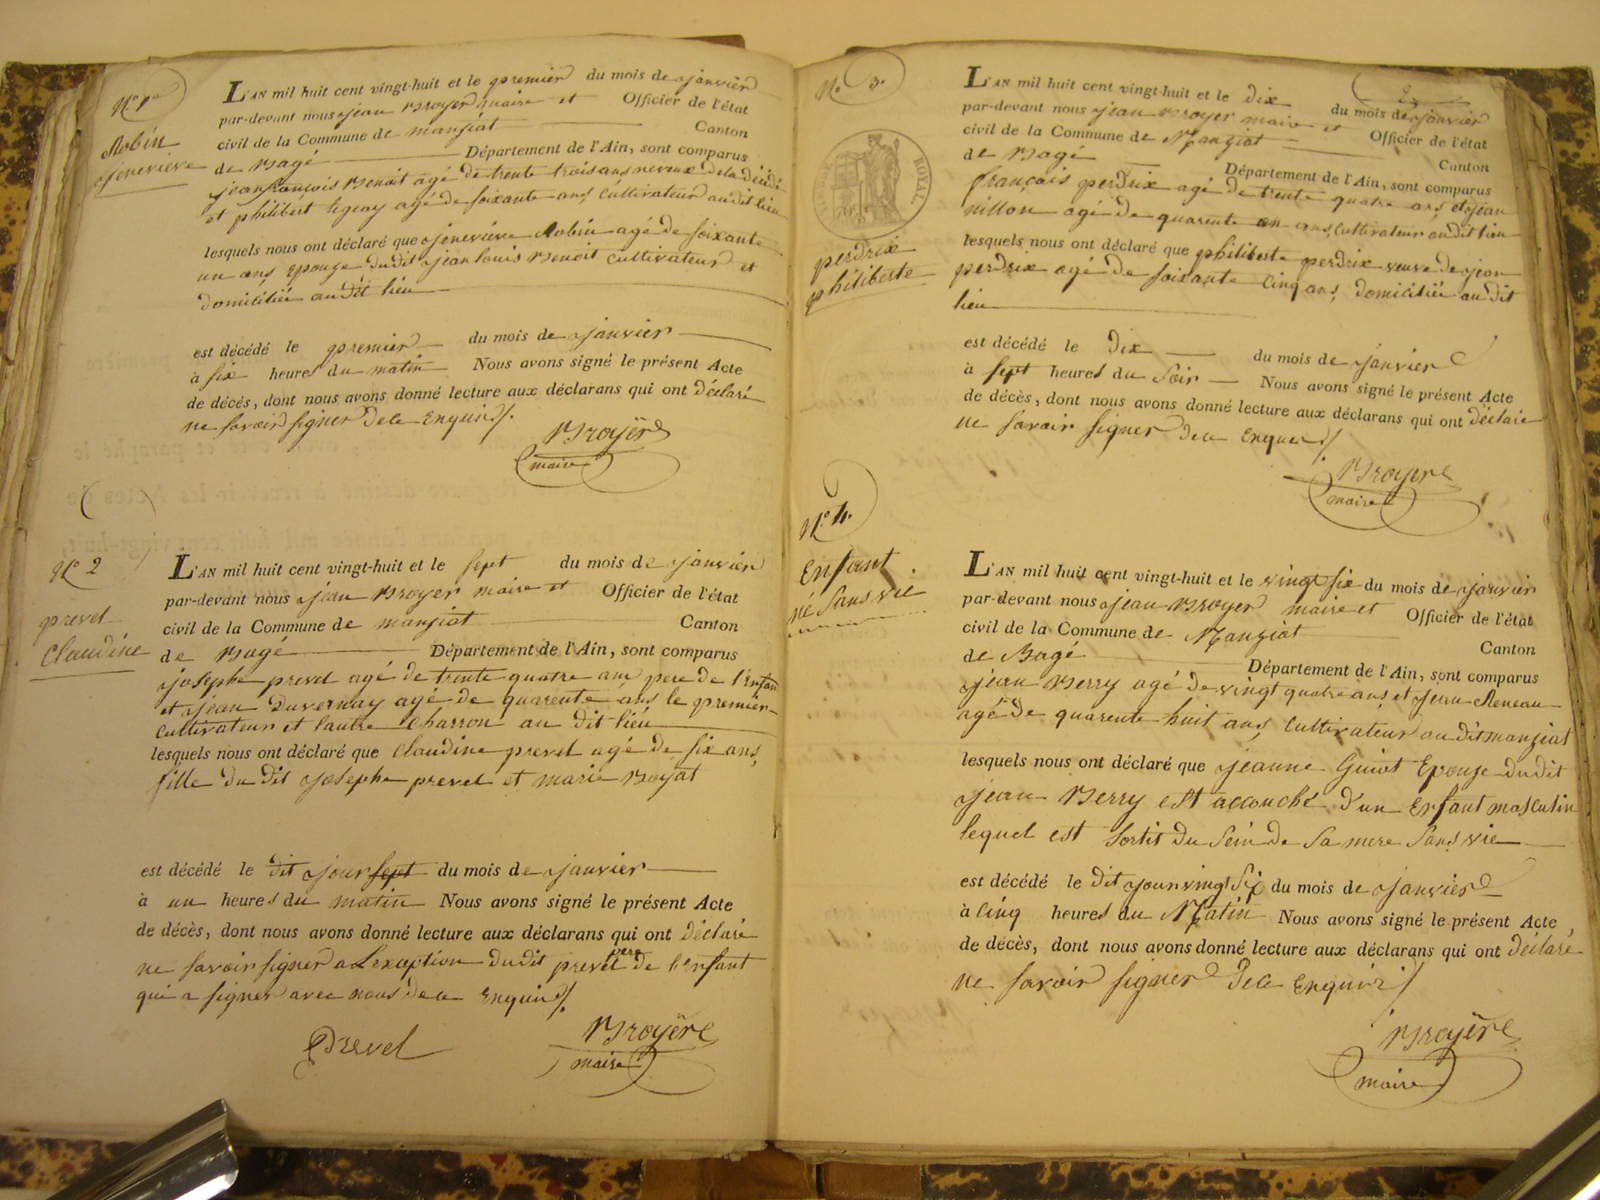 N.° 1er
Robin
jeneviève
L'AN mil huit cent vingt-huit et le premier du mois de janvier
par-devant nous jean Broyer maire et Officier de l'état
civil de la Commune de manziat Canton
de Bagé Département de l'Ain, sont comparus
jean francois Benoit agé de trente trois ans neveux de la décédé
et philibert agé de soixante ans cultivateur au dit lieu
lesquels nous ont déclaré que jeneviève Robin agé de soixante
un ans Epouse dudit jean louis Benoit cultivateur et
domiciliée au dit lieu
est décédé le premier du mois de janvier
à six heures du matin Nous avons signé le présent Acte
de décès, dont nous avons donné lecture aux déclarans qui ont déclaré
ne savoir signer de ce Enquis /.
Broyère
maire
N.° 2
prevel
Claudine
L'AN mil huit cent vingt-huit et le sept du mois de janvier
par-devant nous jean Broyer maire et Officier de l'état
civil de la Commune de manziat Canton
de Bagé Département de l'Ain, sont comparus
josephe prevel agé de trente quatre ans pere de l'Enfan
et jean Duvernay agé de quarente ans le premier
cultivateur et l'autre charron au dit lieu
lesquels nous ont déclaré que Claudine prevel agé de six ans
fille du dit josephe prevel et marie Boyat
est décédé le dit jour sept du mois de janvier
à un heures du matin Nous avons signé le présent Acte
de décès, dont nous avons donné lecture aux déclarans qui ont déclaré
ne savoir signer a Lexception dudit prevel pere de l'Enfant
qui a signer avec nous de ce Enquis /.
Prevel
Broyère
maire
N.° 3.
ROYAL
perdrix
philiberte
L'AN mil huit cent vingt-huit et le dix du mois de janvier
par-devant nous jean Broyer maire et Officier de l'état
civil de la Commune de Mangiat Canton
de Bagé Département de l'Ain, sont comparus
françois perdrix agé de trente quatre ans et jean
nillon agé de quarente un ans cultivateur au dit lieu
lesquels nous ont déclaré que philiberte perdrix veuve de jean
perdrix agé de soixante cinq ans, domiciliée au dit
lieu
est décédé le dix du mois de janvier
à sept heures du soir Nous avons signé le présent Acte
de décès, dont nous avons donné lecture aux déclarans qui ont déclaré
ne savoir signer de ce Enquis /
Broyere
maire
N.° 4.
Enfant
né sans vie
L'AN mil huit cent vingt-huit et le vingt six du mois de janvier
par-devant nous jean Broyer maire et Officier de l'état
civil de la Commune de Mangiat Canton
de Bagé Département de l'Ain, sont comparus
jean Berry agé de vingt quatre ans et jean Reneau
agé de quarente huit ans, cultivateur au dit manziat
lesquels nous ont déclaré que jeanne Guiot Epouse dudit
jean Berry est accouché d'un Enfant masculin
lequel est sortit du sein de sa mere sans vie
est décédé le dit jour vingt six du mois de janvier
à cinq heures du Matin Nous avons signé le présent Acte
de décès, dont nous avons donné lecture aux déclarans qui ont déclaré
ne savoir signer de ce Enquis /
Broyère
maire